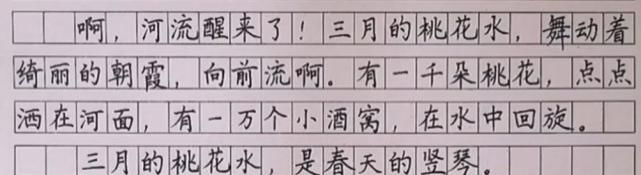 啊，河流醒来了！三月的桃花水，舞动着
绮丽的朝霞，向前流啊。有一千朵桃花，点点
洒在河面，有一万个小酒窝，在水中回旋。
三月的桃花水，是春天的竖琴。